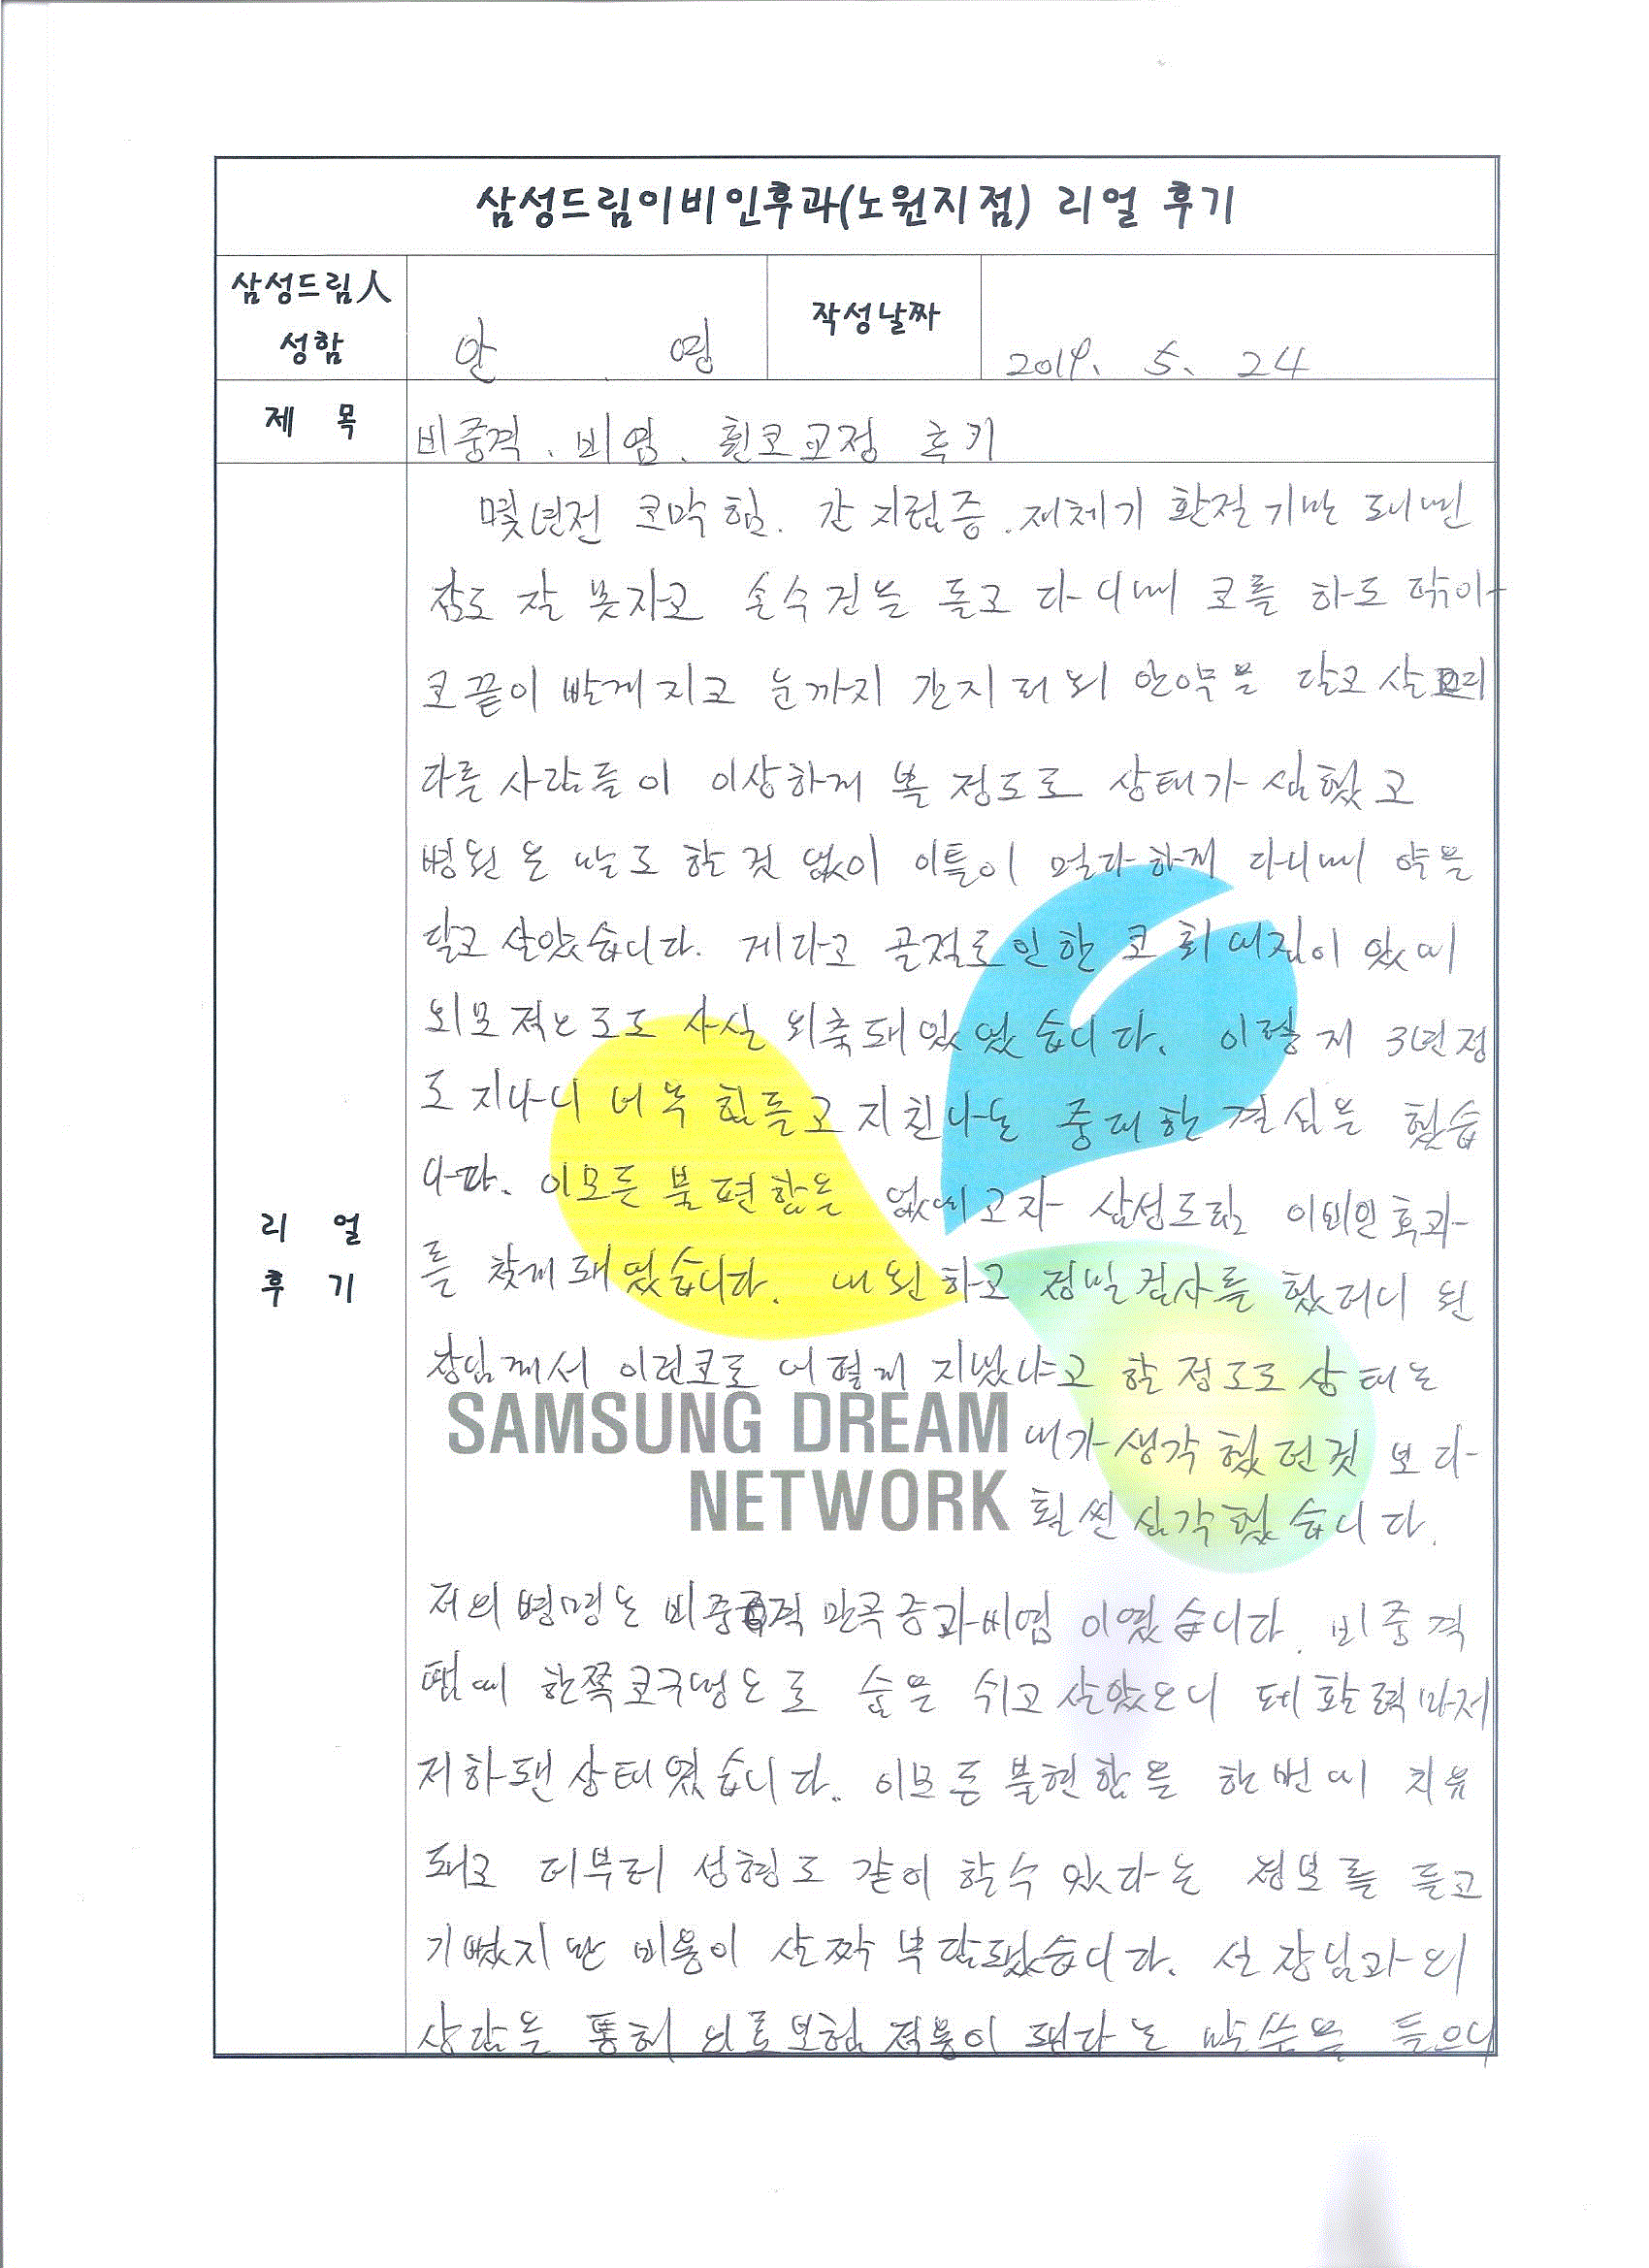 삼성드림이비인후과(노원지점) 리얼 후기
삼성드림人
성함
안 영
작성날짜
2014. 5. 24
제 목
비중격. 비염. 휜코교정 후기
리 얼
후 기
몇년전 코막힘. 간지럼증. 재체기 환절기만 돼면
잠도 잘 못자고 손수건을 들고 다니며 코를 하도 닦아
코끝이 빨게지고 눈까지 간지러워 안약을 달고 살
다른 사람들이 이상하게 볼 정도로 상태가 심했고
병원은 말로 할것 없이 이틀이 멀다하게 다니며 약을
달고 살았습니다. 게다고 골절로인한 코 휘어짐이 있어
외모적으로도 사실 위축돼있었습니다. 이렇게 3년정
도 지나니 너무 힘들고 지친나는 중대한 결심을 했습
니다. 이모든 불편함을 없애고자 삼성드림 이비인후과
를 찾게돼었습니다. 내원하고 정밀검사를 했더니 원
장님께서 이런코로 어떻게 지냈냐고 할정도로 상태는
내가 생각했던것 보다
훨씬 심각했습니다.
SAMSUNG DREAM
NETWORK
저의 병명는 비중격만곡증과비염 이였습니다. 비중격
땜에 한쪽코구멍으로 숨을 쉬고 살았으니 폐활력마저
저하됀상태였습니다. 이모든불현함을 한번에 치유
돼고 더부러 성형도 같이 할수 있다는 정보를 듣고
기뻤지만 비용이 살짝 부담됐습니다. 실장님과의
상담을 통해 의료보험 적용이 돼다는 말씀을 들으니